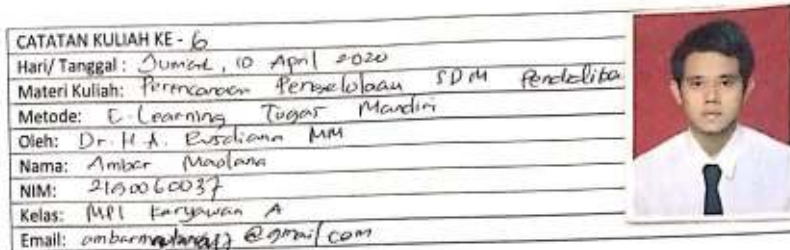 CATATAN KULIAH KE - 6
Hari/ Tanggal : Jumat, 10 April 2020
Materi Kuliah: Perencanaan Pengelolaan SDM
Metode: E-Learning Tugas Mandiri
Oleh: Dr. H. A. Rusdiana MM
Nama: Ambar Maolana
NIM:
Kelas: MPI Karyawan A
Email: